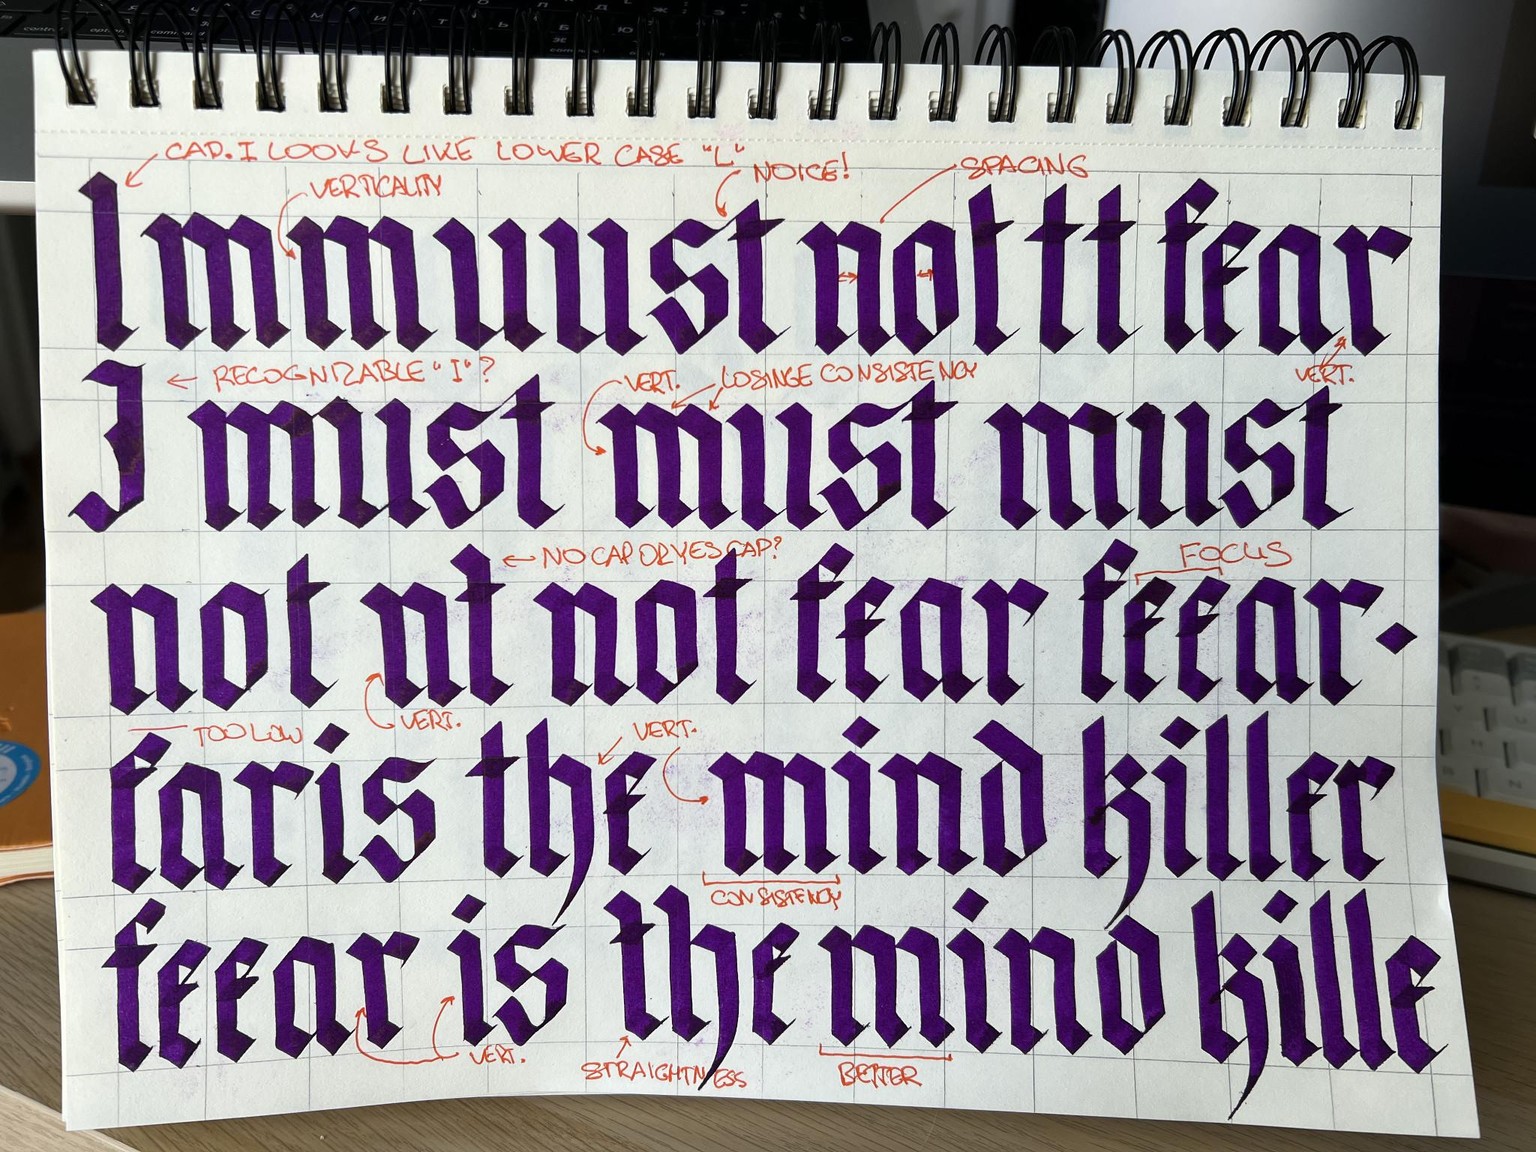 control option command
CAP. I LOOKS LIKE LOWER CASE "L"
NOICE!
SPACING
VERTICALITY
Immuust nottt fear
RECOGNIZABLE "I"?
VERT.
LOSINGE CONSISTENCY
VERT.
I must must must
NO CAP OR YES CAP?
FOCUS
not nt not fear feear.
VERT.
TOO LOW
VERT.
faris the mind killer
CONSISTENCY
feear is the mind kille
VERT.
STRAIGHTNESS
BETTER